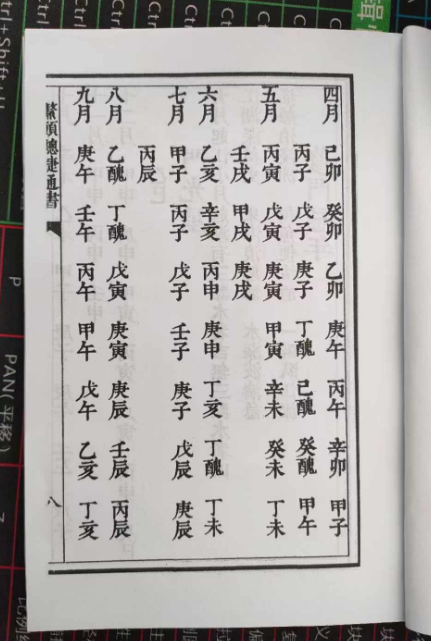 四月 己卯 癸卯 乙卯 庚午 丙午 辛卯 甲子
丙子 戊子 庚子 丁醜 己醜 癸醜 甲午
五月 丙寅 戊寅 庚寅 甲寅 辛未 癸未 丁未
壬戌 甲戌 庚戌
六月 乙亥 辛亥 丙申 庚申 丁亥 丁醜 丁未
七月 甲子 丙子 戊子 壬子 庚子 戊辰 庚辰
丙辰
八月 乙醜 丁醜 戊寅 庚寅 庚辰 壬辰 丙辰
九月 庚午 壬午 丙午 甲午 戊午 乙亥 丁亥
鰲頭總捷通書
八
P
PAN(平移)